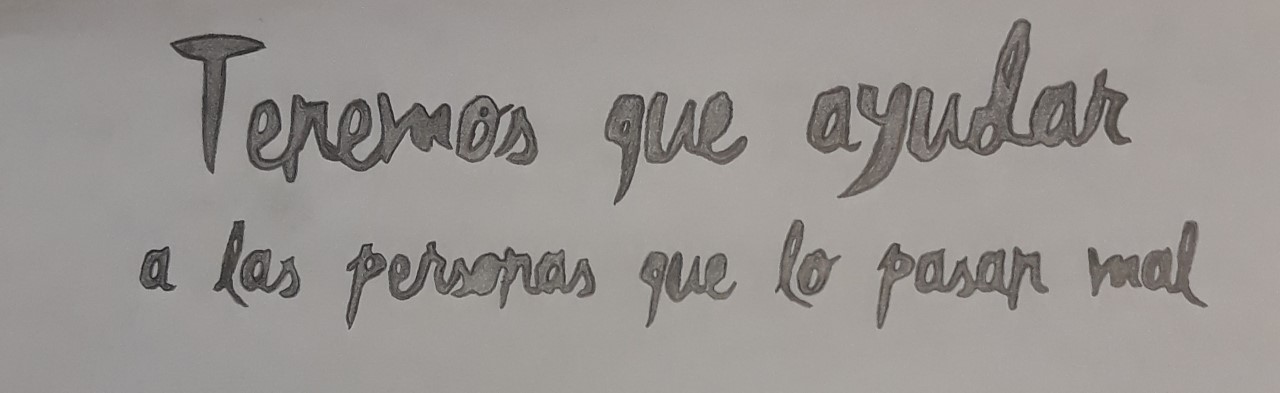 Tenemos que ayudar
a las personas que lo pasan mal